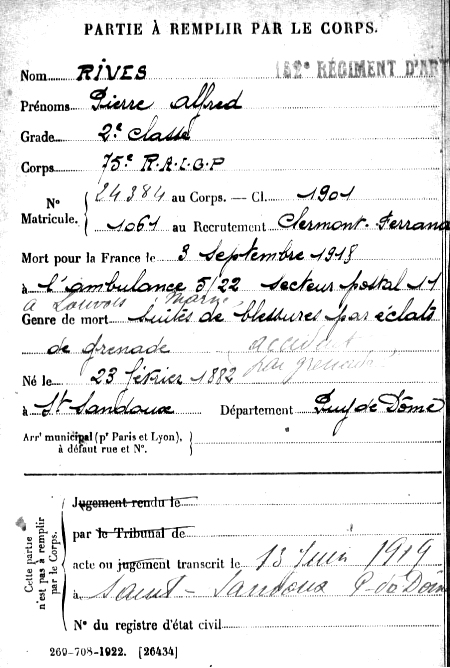 PARTIE À REMPLIR PAR LE CORPS.
152e RÉGIMENT D'ART
Nom RIVES
Prénoms Pierre Alfred
Grade 2e classe
Corps 75e R.A.L.G.P
N° Matricule. 24384 au Corps. — Cl. 1901
1061 au Recrutement Clermont-Ferrand
Mort pour la France le 3 septembre 1918
à l'ambulance 5/22 secteur postal 11
à Louvois Marne
Genre de mort suites de blessures par éclats
de grenade accident
par grenade
Né le 23 février 1882
à St Sandoux Département Puy de Dôme
Arrt municipal (pr Paris et Lyon),
à défaut rue et N°.
Cette partie n'est pas à remplir par le Corps.
Jugement rendu le
par le Tribunal de
acte ou jugement transcrit le 13 Juin 1919
à Saint-Sandoux P-de Dôm
N° du registre d'état civil
269-708-1922. [26434]